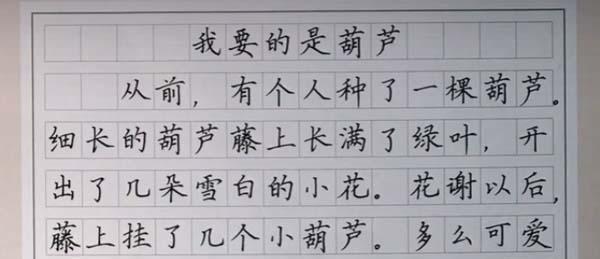 我要的是葫芦
从前，有个人种了一棵葫芦。
细长的葫芦藤上长满了绿叶，开
出了几朵雪白的小花。花谢以后，
藤上挂了几个小葫芦。多么可爱